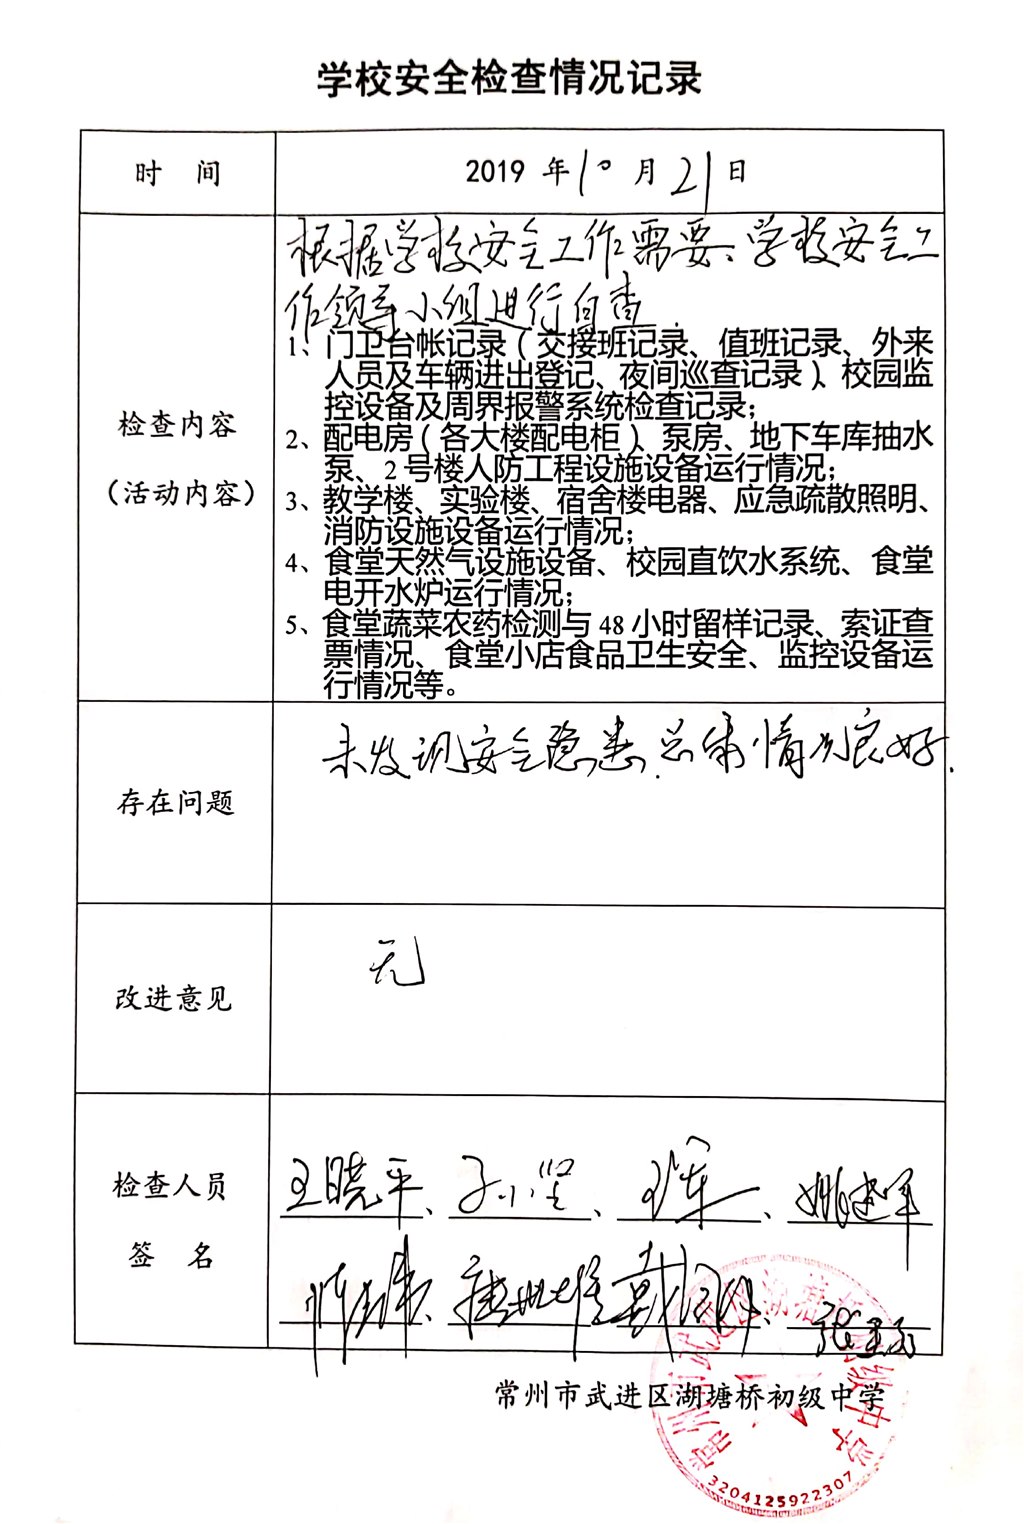 学校安全检查情况记录
时 间
2019 年 10 月 21 日
检查内容
（活动内容）
根据学校安全工作需要、学校安全工
作领导小组进行自查.
1、门卫台帐记录（交接班记录、值班记录、外来
人员及车辆进出登记、夜间巡查记录）、校园监
控设备及周界报警系统检查记录；
2、配电房（各大楼配电柜）、泵房、地下车库抽水
泵、2 号楼人防工程设施设备运行情况；
3、教学楼、实验楼、宿舍楼电器、应急疏散照明、
消防设施设备运行情况；
4、食堂天然气设施设备、校园直饮水系统、食堂
电开水炉运行情况；
5、食堂蔬菜农药检测与 48 小时留样记录、索证查
票情况、食堂小店食品卫生安全、监控设备运
行情况等。
存在问题
未发现安全隐患.总体情况良好.
改进意见
无
检查人员
签 名
王晓平、
常州市武进区湖塘桥初级中学
3204125922307